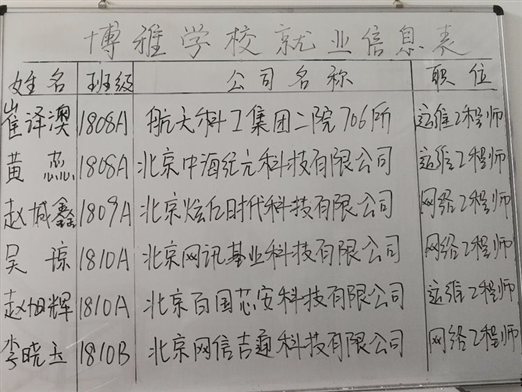 博雅学校就业信息表
姓名 班级 公司名称 职位
崔译澳 1808A 航天科工集团二院706所 运维工程师
黄蕊 1808A 北京中海纪元科技有限公司 运维工程师
赵城鑫 1809A 北京炫亿时代科技有限公司 网络工程师
吴琼 1810A 北京网讯基业科技有限公司 网络工程师
赵旭辉 1810A 北京百国芯安科技有限公司 运维工程师
李晓玉 1810B 北京网信吉通科技有限公司 网络工程师